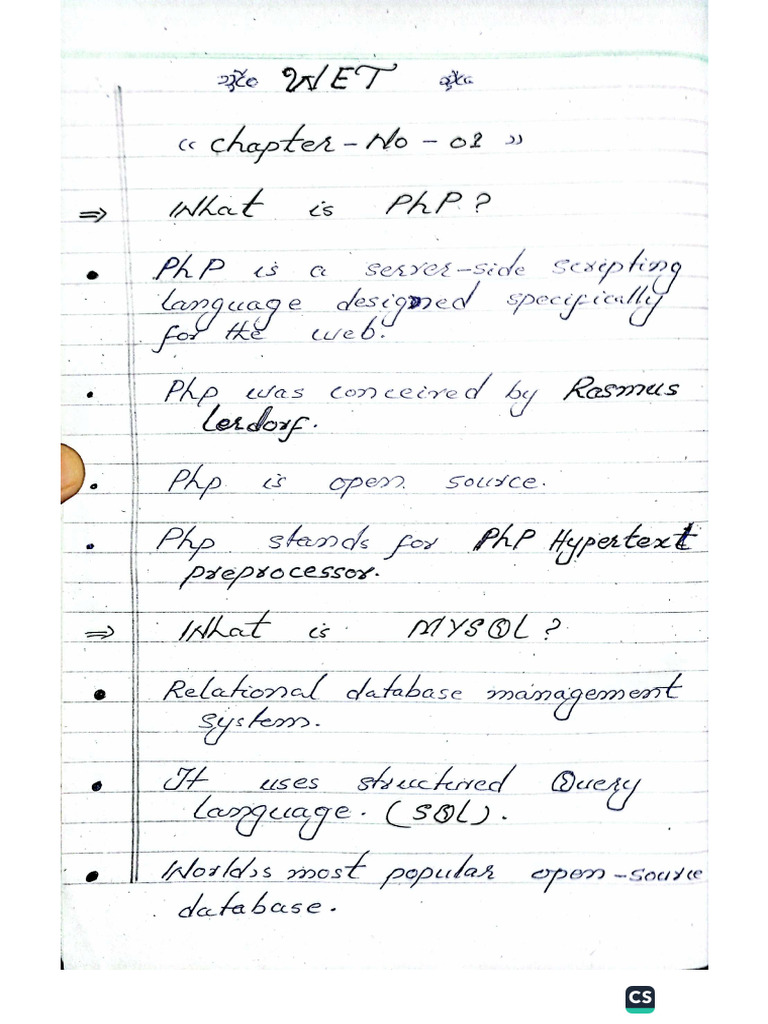 WET
" Chapter - No - 01 "
⇒ What is PhP?
• PhP is a server-side scripting
language designed specifically
for the web.
• Php was conceived by Rasmus
Lerdorf.
• Php is open source.
• Php stands for PhP Hypertext
preprocessor.
⇒ What is MYSQL?
• Relational database management
system.
• It uses structured Query
Language. (SQL).
• World,s most popular open-source
database.
CS